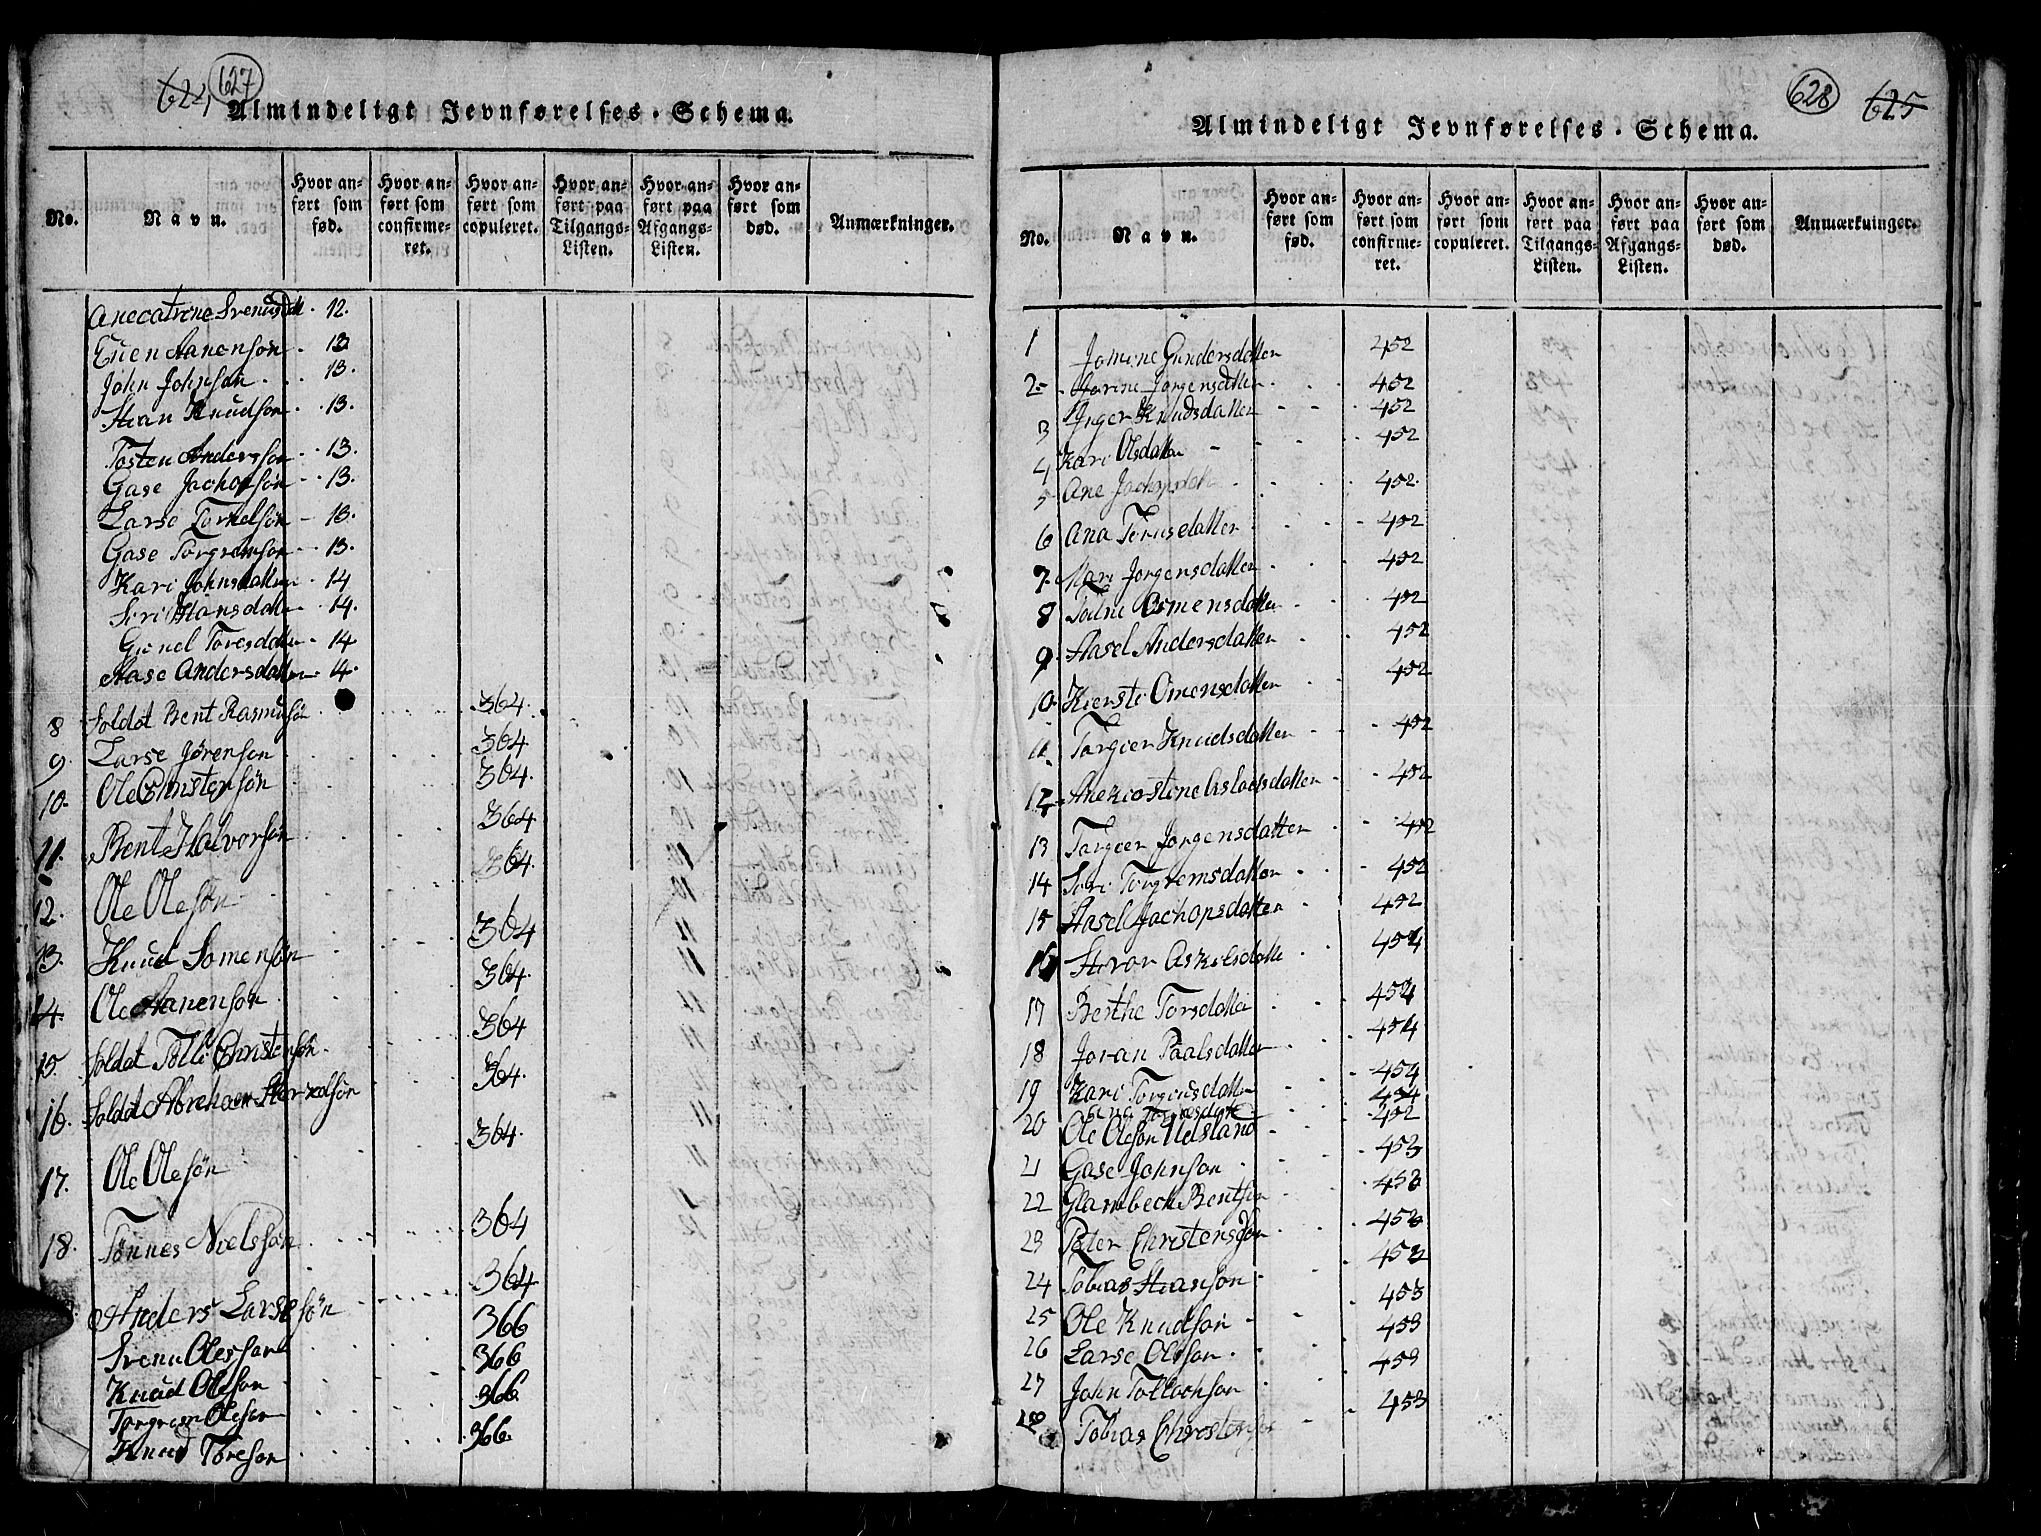 627
Almindeligt Jevnførelses-Schema.
No. Navn. Hvor anført som fød. Hvor anført som confirmeret. Hvor anført som copuleret. Hvor anført paa Tilgangs-Listen. Hvor anført paa Afgangs-Listen. Hvor anført som død. Anmærkninger.
Anecatrine 12.
Even Aanensøn 13
John Johnsøn 13.
Knudsøn 13.
Tosten Anderssøn 13.
Gase Jachopsøn 13.
Larse 13.
Gase Torgremsøn 13.
Kari Johnsdatter 14
Siri Hansdatter 14.
Gunel Toresdatter 14
Aase Andersdatter 14.
8 Soldat Bent Rasmusøn 364.
9. Larse Jørensøn 364
10. Ole Christensøn 364.
11. Bent Halvorsøn 364
12. Ole Olesøn 364.
13. Knud Somensøn 364
14. Ole Aanensøn 364.
15. Soldat Tolle Christensøn 364
16. Soldat Abreham 364.
17. Ole Olesøn 364.
18. Tønnes Nielssøn 364
Anders Larsesøn 364
Svenu Olessøn 366
Knud Olesøn 366
Torgrem Olesøn 366
Knud Toresøn 366.
628 625
Almindeligt Jevnførelses-Schema.
No. Navn. Hvor anført som fød. Hvor anført som confirmeret. Hvor anført som copuleret. Hvor anført paa Tilgangs-Listen. Hvor anført paa Afgangs-Listen. Hvor anført som død. Anmærkninger.
1 Jomine Gundersdatter 452
2 Jorgensdatter 452
3 Inger Knudsdatter 452
4 Kari Olsdatter 452
5 Ane 452.
6 Ana 452
7. Mari Jorgensdatter 452
8 Omensdatter 452
9. Aasel Andersdatter 452
10. Kiersti Omensdatter 452
11. Torgier Knudsdatter 452
12. 452
13 Torgier Jorgensdatter 452
14 Siri Torgremsdatter 452
15 Aasel Jachopsdatter 452
16 Askilsdatter 454
17 Berthe Torsdatter 454
18 Joran Paalsdatter 454
19 Kari 454
454
20 Ole Olesøn 452
21 Gase Johnsøn 453
22 Glambech Bentsøn 453
23 Peter Christensøn 453
24 Tobias 453
25 Ole Knudsøn 453
26 Larse Olesøn 453
27 John 453
28 Tobias Christensøn 453